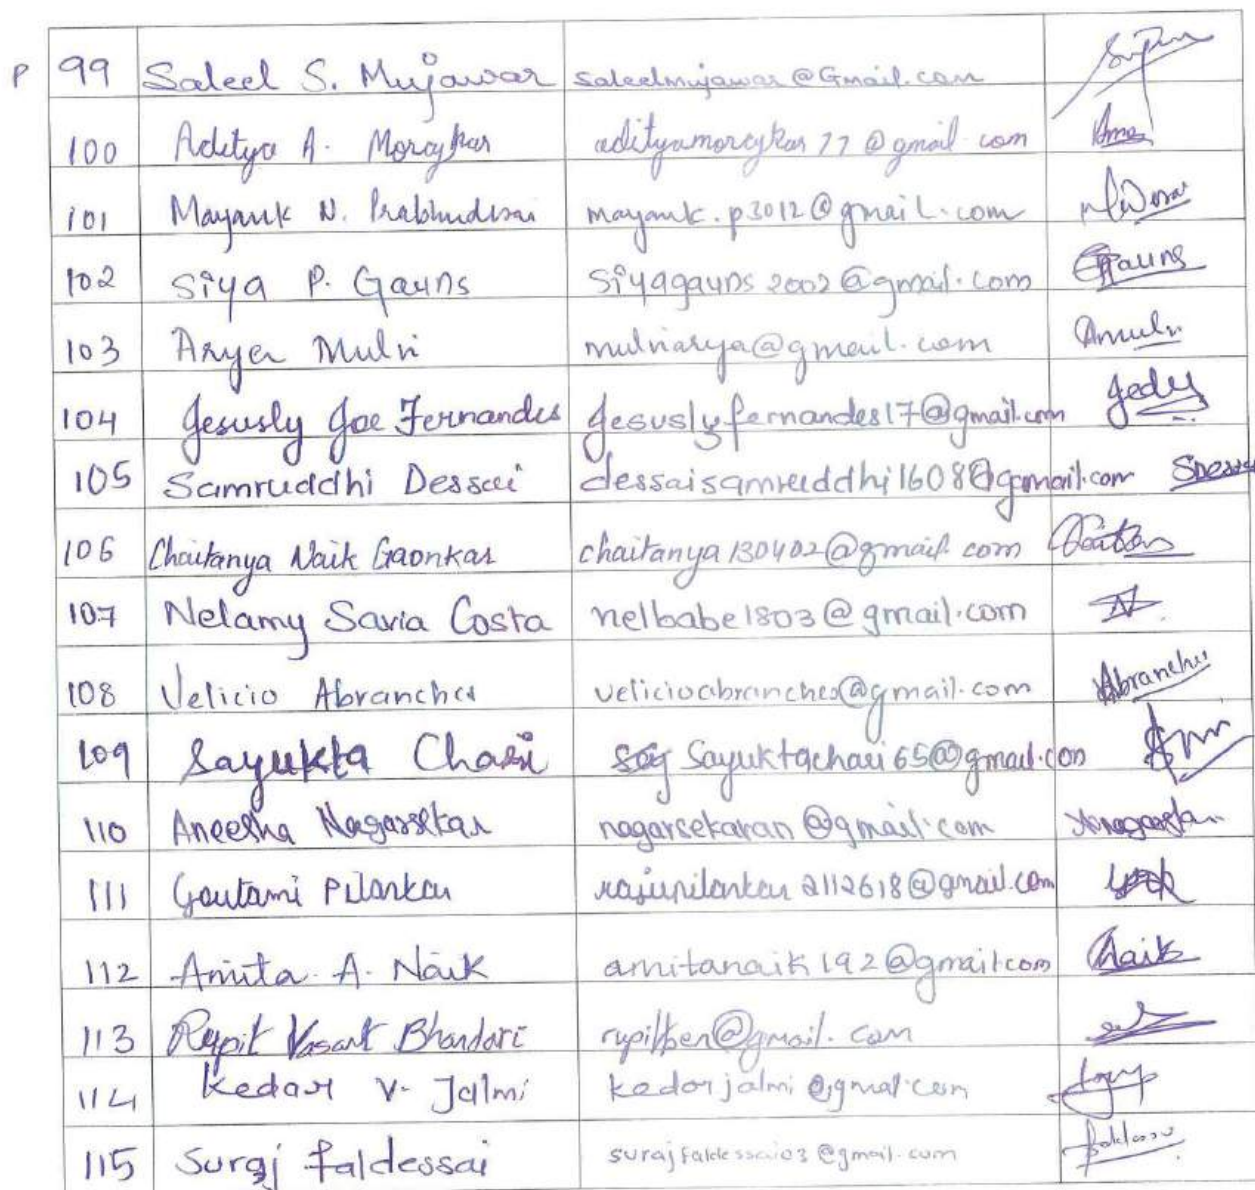 P 99 Saleel S. Mujawar saleelmujawar@Gmail.com
100 Aditya A. Morajkar adityamorajkar77@gmail.com
101 Mayank N. Prabhudesai mayank.p3012@gmail.com
102 Siya P. Gauns siyagauns2002@gmail.com Gauns
103 Arya Mulvi mulviarya@gmail.com Amulvi
104 Jesusly Joe Fernandes Jesuslyfernandes17@gmail.com
105 Samruddhi Dessai dessaisamruddhi1608@gmail.com
106 Chaitanya Naik Gaonkar chaitanya130402@gmail.com
107 Nelamy Savia Costa nelbabe1803@gmail.com
108 Velicio Abranches velicioabranches@gmail.com Abranches
109 Sayukta Chari Sayuktachari65@gmail.com
110 Aneesha Nagarsekar nagarsekaran@gmail.com
111 Gautami Pilankar rajupilankar2112618@gmail.com
112 Amita A. Naik amitanaik192@gmail.com Naik
113 Rupit Vasant Bhandari
114 Kedar V. Jalmi kedarjalmi@gmail.com
115 Suraj faldessai surajfaldessai03@gmail.com